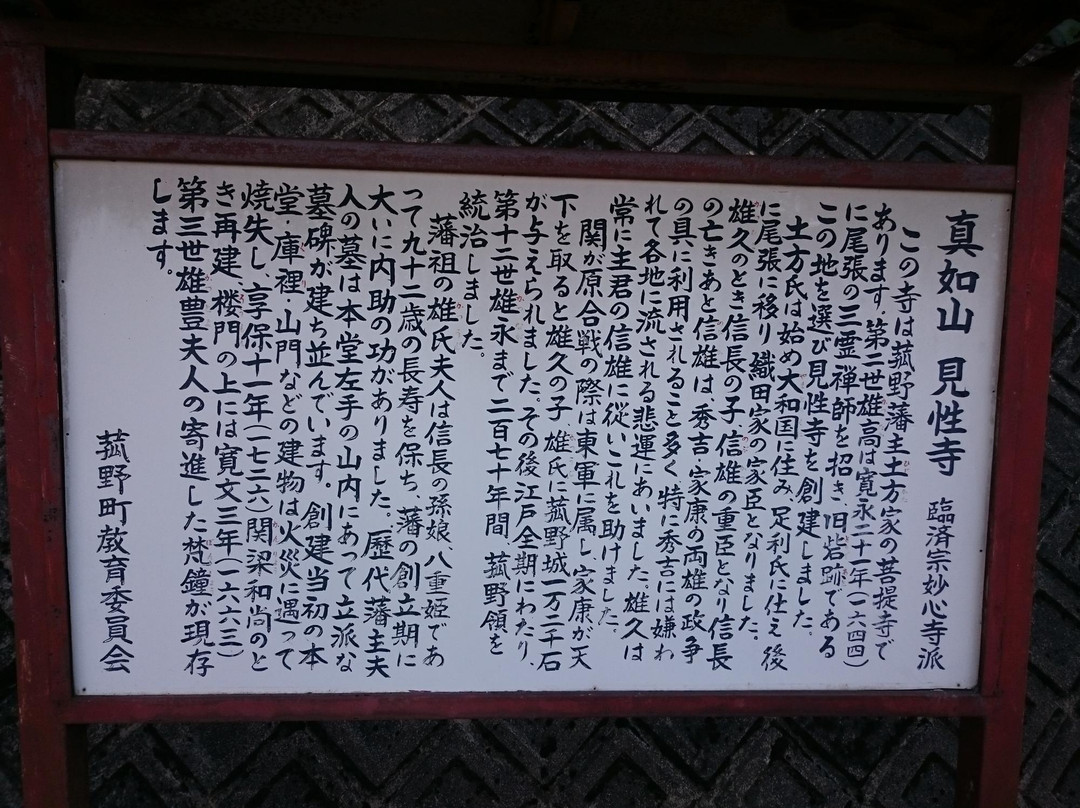 真如山 見性寺 臨済宗妙心寺派
この寺は菰野藩主土方家の菩提寺で
あります。第二世雄高は寛永二十一年(一六四四)
に尾張の三霊禅師を招き旧砦跡である
この地を選び見性寺を創建しました。
土方氏は始め大和国に住み、足利氏に仕え後
に尾張に移り織田家の家臣となりました。
雄久のとき信長の子、信雄の重臣となり信長
の亡きあと信雄は、秀吉、家康の両雄の政争
の具に利用されること多く、特に秀吉には嫌わ
れて各地に流される悲運にあいました。雄久は
常に主君の信雄に従いこれを助けました。
関が原合戦の際は東軍に属し、家康が天
下を取ると雄久の子、雄氏に菰野城一万二千石
が与えられました。その後江戸全期にわたり、
第十二世雄永まで二百七十年間、菰野領を
統治しました。
藩祖の雄氏夫人は信長の孫娘、八重姫であ
って九十二歳の長寿を保ち、藩の創立期に
大いに内助の功がありました、歴代藩主夫
人の墓は本堂左手の山内にあって立派な
墓碑が建ち並んでいます。創建当初の本
堂・庫裡・山門などの建物は火災に遇って
焼失し、享保十一年(一七二六)関梁和尚のと
き再建、楼門の上には寛文三年(一六六三)
第三世雄豊夫人の寄進した梵鐘が現存
します。
菰野町教育委員会